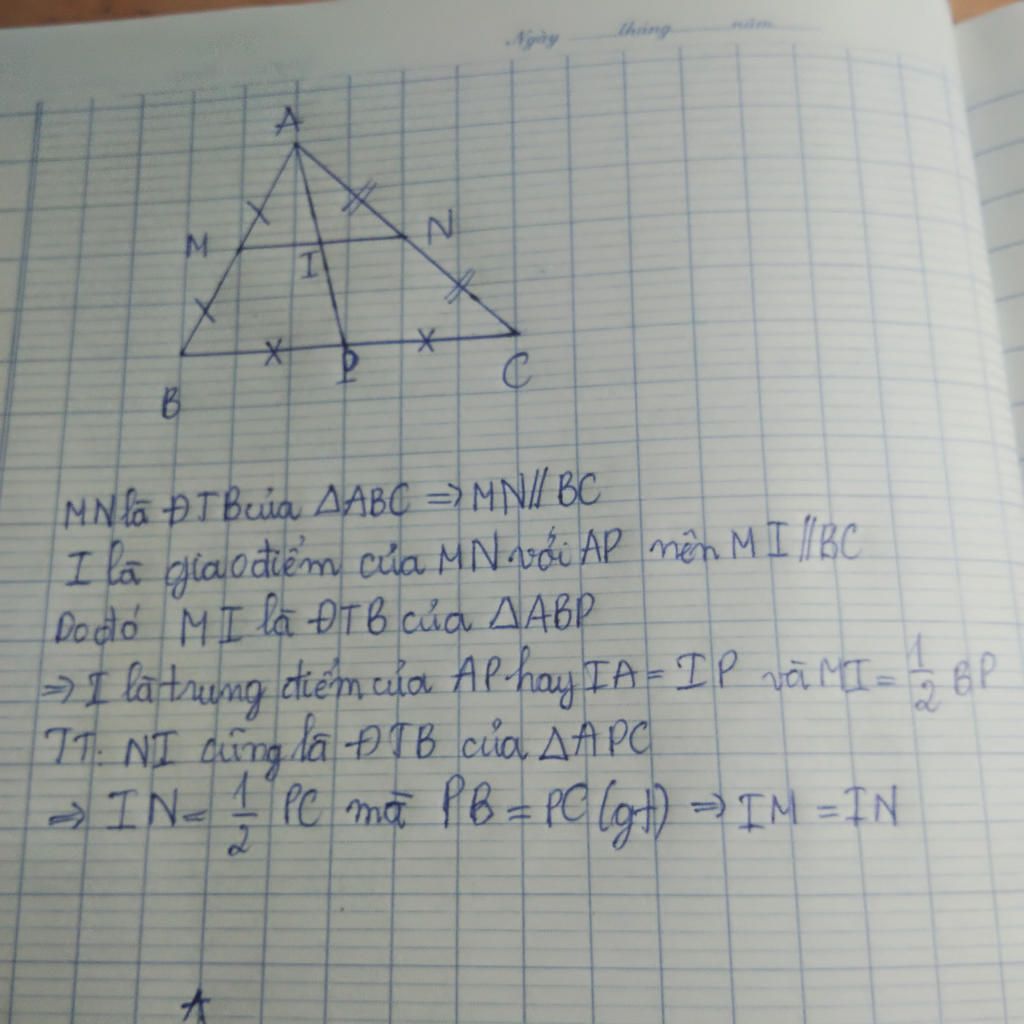 Ngày tháng năm
A
M N
I
B P C
MN là ĐTB của ΔABC ⇒ MN // BC
I là giao điểm của MN với AP nên MI // BC
Do đó MI là ĐTB của ΔABP
⇒ I là trung điểm của AP hay IA = IP và MI = 1/2 BP
TT: NI cũng là ĐTB của ΔAPC
⇒ IN = 1/2 PC mà PB = PC (gt) ⇒ IM = IN
A